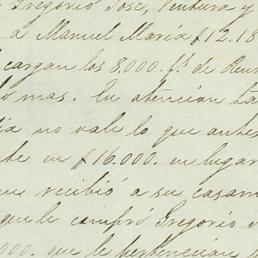 Gregorio José, Ventura y
a Manuel Maria $12.18
cargan los 8.000. fs. de
lo mas. En atencion
dia no vale lo que ante
te en $16.000. en lugar
que recibió a su casam
que le compró Gregorio
000. que le pertenecian